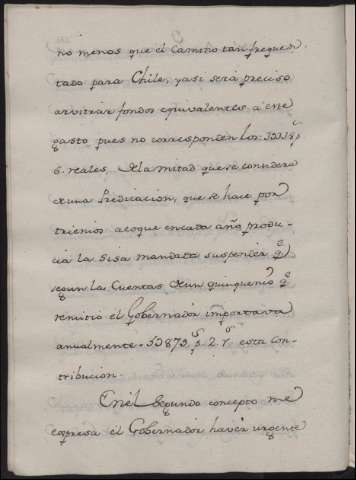 no menos que el Camino tan frequen
tado para Chile, y asi será preciso
arvitrar fondos equivalentes á ese
gasto pues no corresponden los 3ɔ338 p.s
6. reales. de la mitad que se considera
de una Predicacion, que se hace por
trienios á lo que en cada año produ-
cia la Sisa mandada suspender q.e
segun las Cuentas de un quinquenio q.e
remitió el Governador importava
anualmente 5ɔ873. p.s 2. r.s esta con-
tribucion.
En el Segundo concepto me
expresa el Governador haver urgente